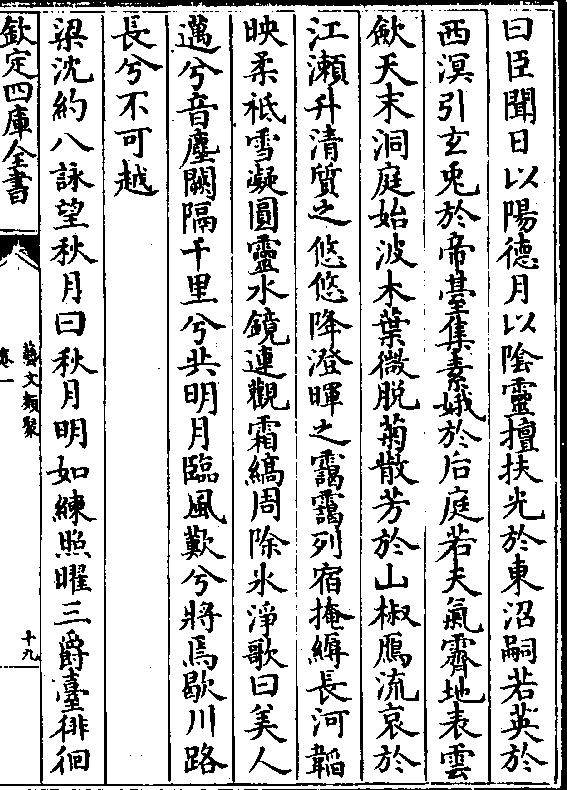 曰臣聞日以陽德月以陰靈擅扶光於東沼嗣若英於
西溟引玄兎於帝臺集素娥於后庭若夫氣霽地表雲
斂天末洞庭始波木葉微脱菊散芳於山椒鴈流哀於
江瀬升清質之悠悠降澄暉之靄靄列宿掩縟長河韜
映柔祗雪凝圓靈水鏡連觀霜縞周除氷淨歌曰美人
邁兮音塵闕隔千里兮共明月臨風歎兮將焉歇川路
長兮不可越
梁沈約八詠望秋月曰秋月明如練照曜三爵臺徘徊
欽定四庫全書
藝文類聚
卷一
十九